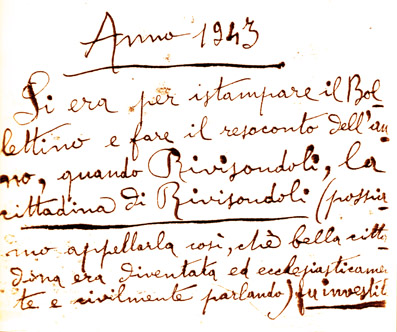 Anno 1943
Si era per istampare il Bol-
lettino e fare il resoconto dell'an-
no, quando Rivisondoli, la
cittadina di Rivisondoli (possia
mo appellarla così, chè bella citta
dina era diventata ed ecclesiasticamen
te e civilmente parlando) fu investit